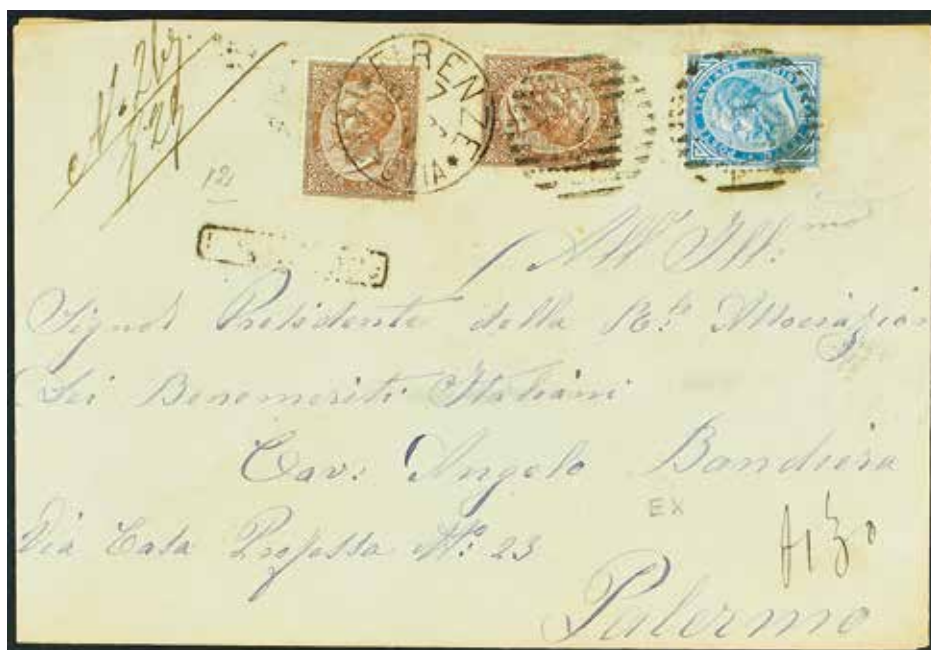 N. 263.
FIRENZE
CITTA *
12
All' Ill.mo
Signor Presidente della R.le Associazion
Dei Benemeriti Italiani
Cav: Angelo Bandiera
EX
Via Casa Professa N.º 23
Palermo